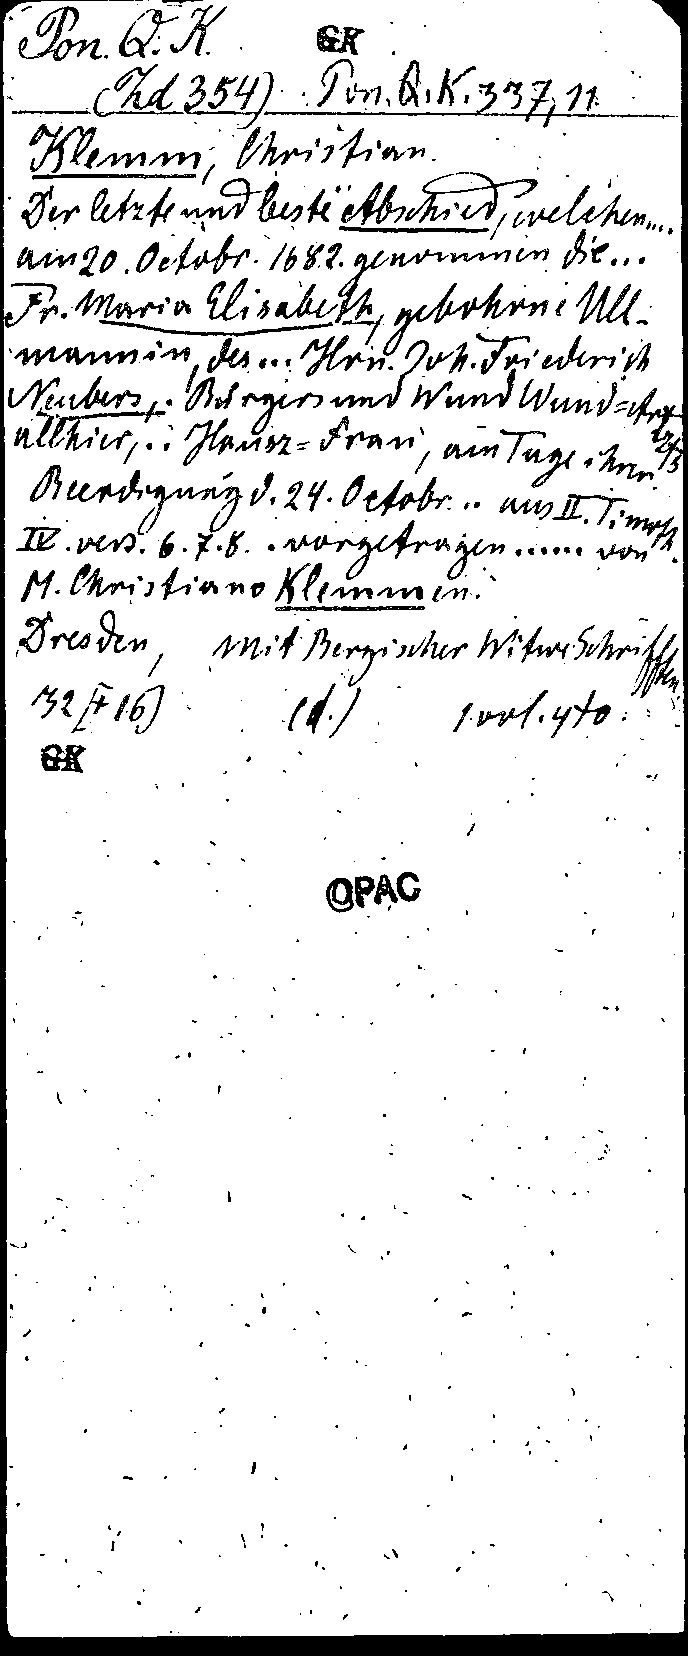 Pon. Q. K. GK
(Zd 354) Pon. Q. K. 337, 11
Klemm, Christian.
Der letzte und beste Abschied, welchen...
am 20. Octobr. 1682. genommen die...
Fr. Maria Elisabeth, gebohrne Ull-
mannin, des... Hrn. Joh. Friederich
Neubers, . Bürgers und Wund Wund=Artztes
allhier, .. Hausz=Frau, am Tage ihrer
Beerdigung d. 24. Octobr. .. aus II. Timoth.
IV. vers. 6. 7. 8. . vorgetragen ...... von
M. Christiano Klemmen.
Dresden, Mit Bergischer Witwe Schrifften.
32 [+ 16) (d.) 1 vol. 4to.
GK
OPAC